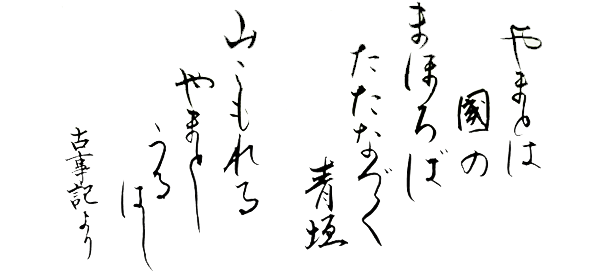 やまとは
國の
まほろば
たたなづく
青垣
山こもれる
やまとし
うる
はし
古事記より